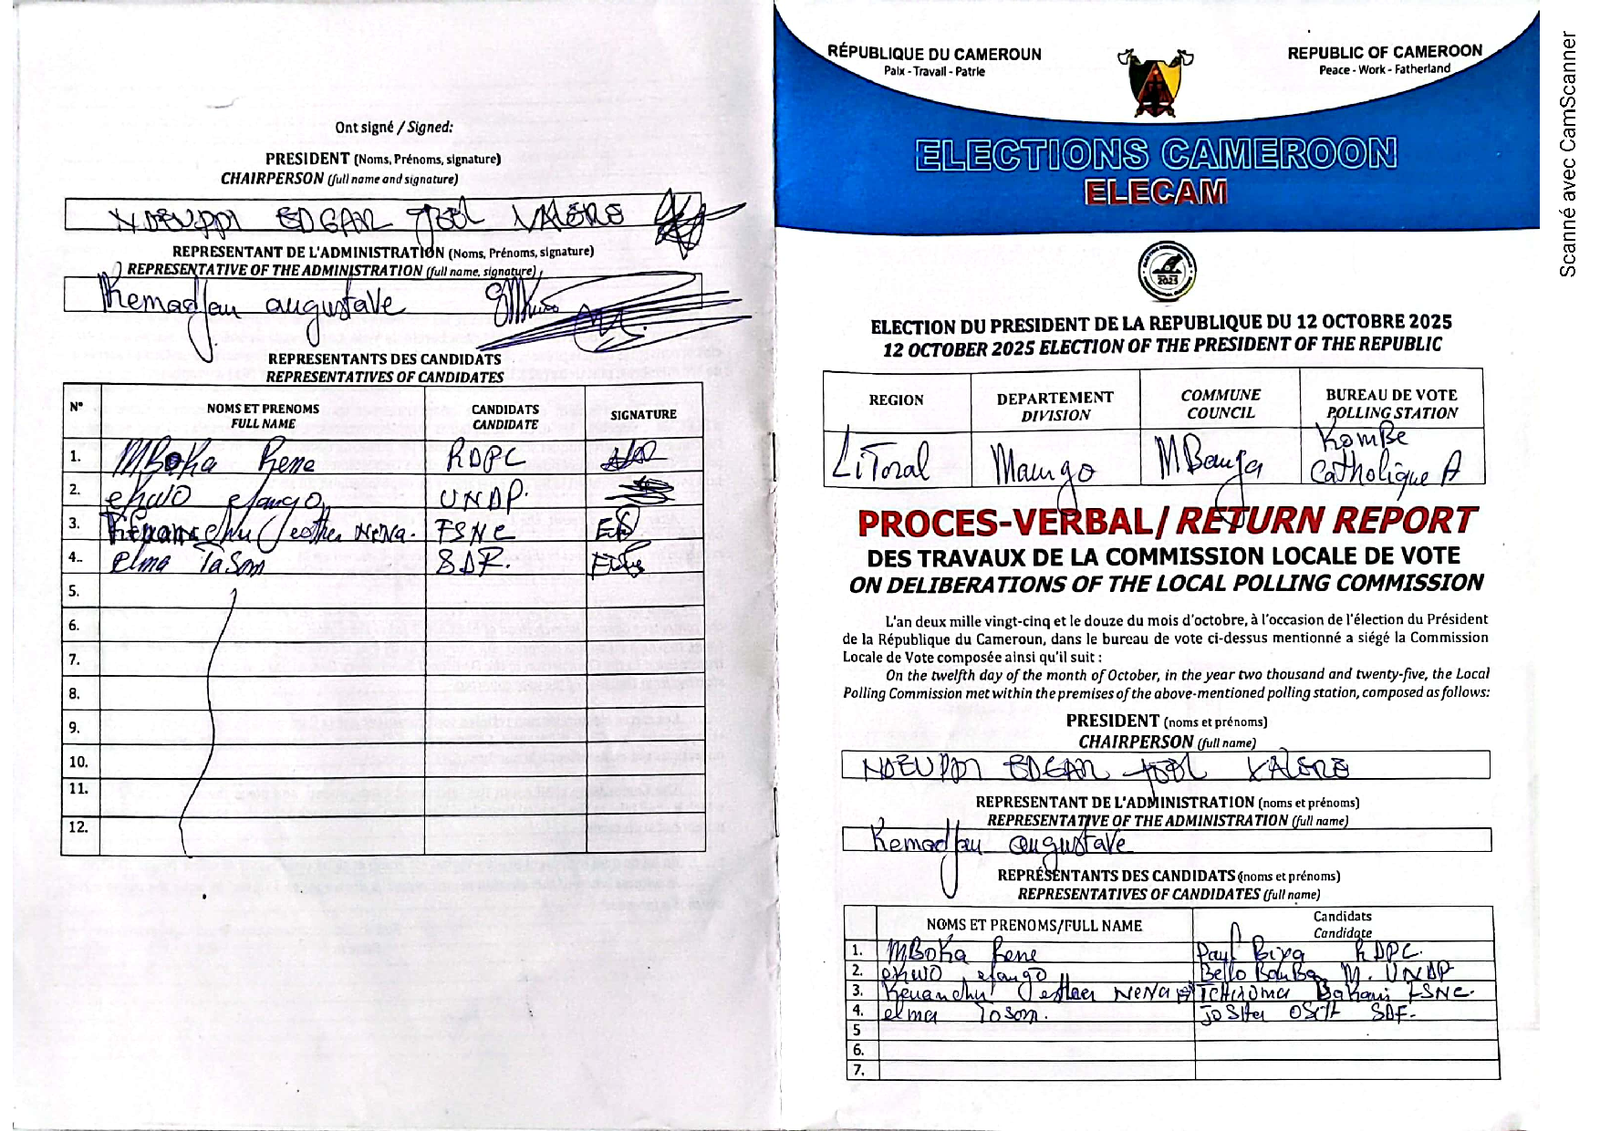 Ont signé / Signed:
PRESIDENT (Noms, Prénoms, signature)
CHAIRPERSON (full name and signature)
NDEUPPI EDGAR JOEL VALERE
REPRESENTANT DE L'ADMINISTRATION (Noms, Prénoms, signature)
REPRESENTATIVE OF THE ADMINISTRATION (full name, signature)
Kemadjau augustave
REPRESENTANTS DES CANDIDATS
REPRESENTATIVES OF CANDIDATES
N° NOMS ET PRENOMS FULL NAME CANDIDATS CANDIDATE SIGNATURE
1. MBoKa Rene RDPC
2. ekwo elango UNDP.
3. esther NeNa. FSNC
4. elma TaSom SDF.
5.
6.
7.
8.
9.
10.
11.
12.
RÉPUBLIQUE DU CAMEROUN
Paix - Travail - Patrie
REPUBLIC OF CAMEROON
Peace - Work - Fatherland
ELECTIONS CAMEROON
ELECAM
2025
ELECTION DU PRESIDENT DE LA REPUBLIQUE DU 12 OCTOBRE 2025
12 OCTOBER 2025 ELECTION OF THE PRESIDENT OF THE REPUBLIC
REGION DEPARTEMENT DIVISION COMMUNE COUNCIL BUREAU DE VOTE POLLING STATION
LiToral Moungo MBanga KomBe Catholique A
PROCES-VERBAL/ RETURN REPORT
DES TRAVAUX DE LA COMMISSION LOCALE DE VOTE
ON DELIBERATIONS OF THE LOCAL POLLING COMMISSION
L'an deux mille vingt-cinq et le douze du mois d'octobre, à l'occasion de l'élection du Président
de la République du Cameroun, dans le bureau de vote ci-dessus mentionné a siégé la Commission
Locale de Vote composée ainsi qu'il suit :
On the twelfth day of the month of October, in the year two thousand and twenty-five, the Local
Polling Commission met within the premises of the above-mentioned polling station, composed as follows:
PRESIDENT (noms et prénoms)
CHAIRPERSON (full name)
NDEUPPI EDGAR JOEL VALERE
REPRESENTANT DE L'ADMINISTRATION (noms et prénoms)
REPRESENTATIVE OF THE ADMINISTRATION (full name)
Kemadjau augustave
REPRÉSENTANTS DES CANDIDATS (noms et prénoms)
REPRESENTATIVES OF CANDIDATES (full name)
NOMS ET PRENOMS/FULL NAME Candidats Candidate
1. MBoKa Rene Paul Biya RDPC.
2. ekwo elango Bello BouBa M. UNDP
3. Kenanchu esther NeNa Tchiroma Bakari FSNC.
4. elma Tasom. JoSHua OSIH SDF.
5
6.
7.
Scanné avec CamScanner